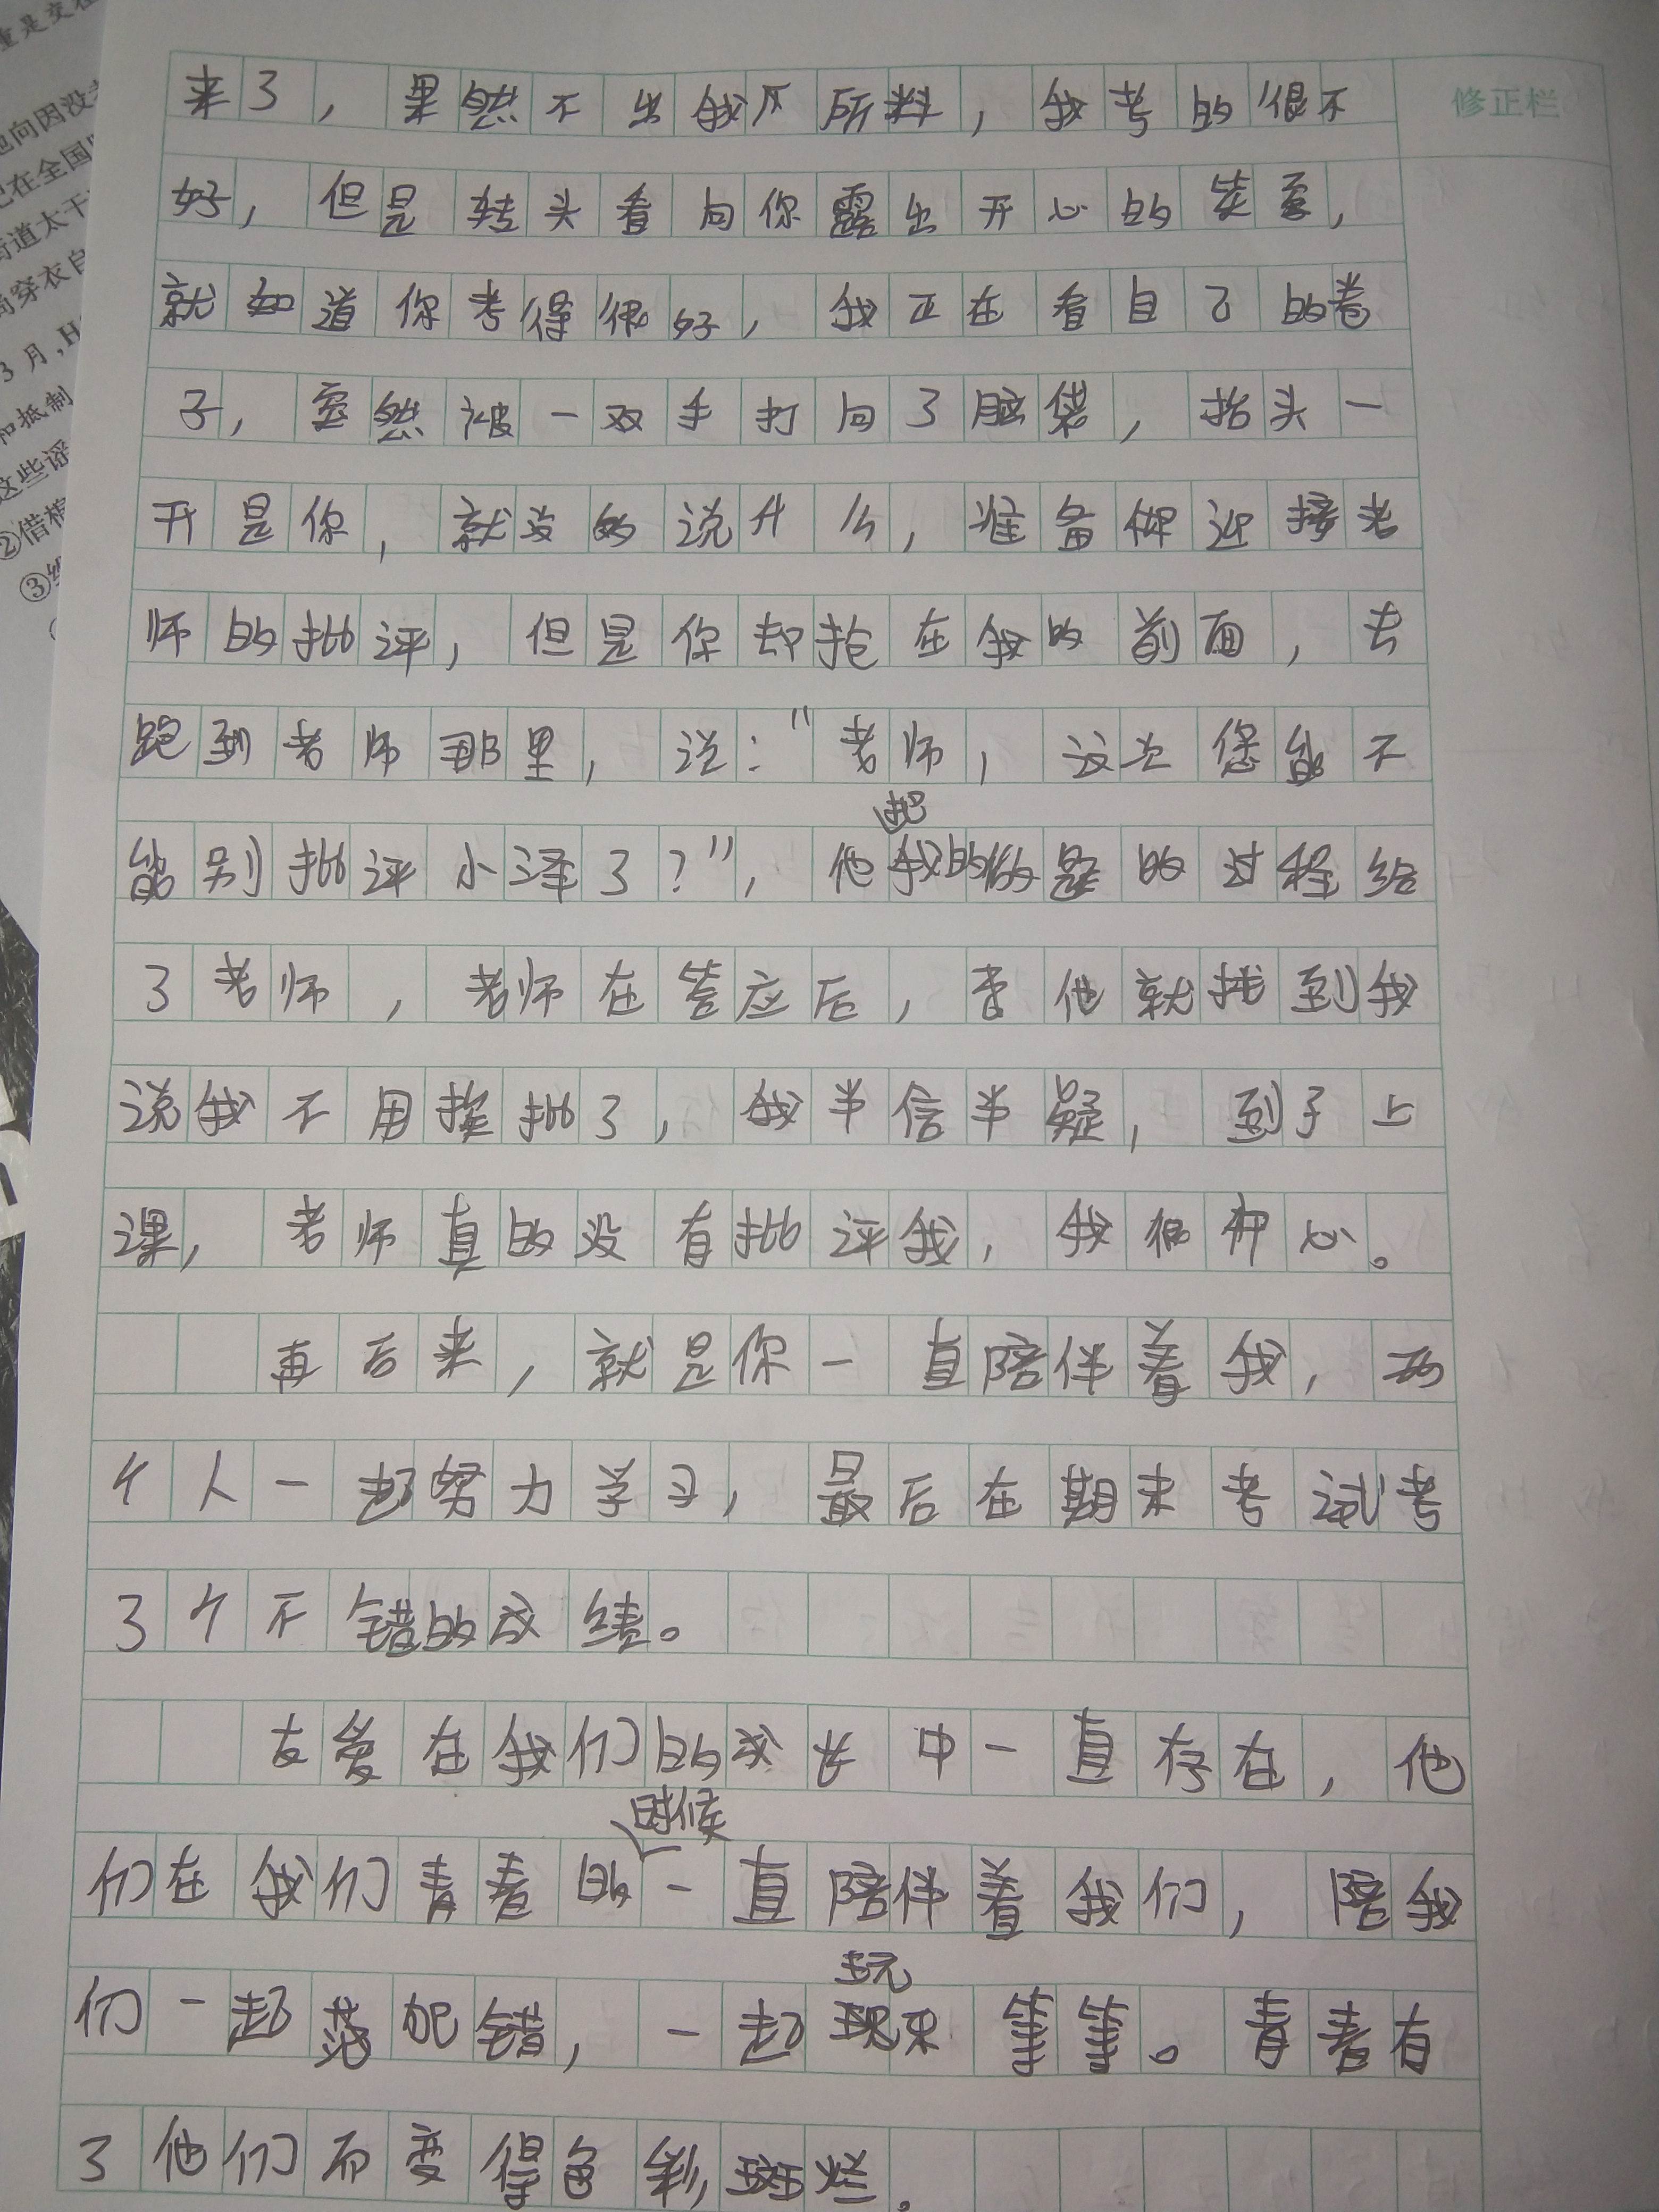 重是交社
地向因没
已在全国
街道太干
局穿衣自
3月,H
和抵制
这些谣
②借棉
③
修正栏
来了，果然不出我所料，我考的很不
好，但是转头看向你露出开心的笑容，
就知道你考得很好，我正在看自己的卷
子，突然被一双手打向了脑袋，抬头一
开是你，就没的说什么，准备迎接老
师的批评，但是你却抢在我的前面，去
跑到老师那里，说："老师，这次您能不
能别批评小泽了？"，他把我的做题的过程给
了老师，老师在答应后，他就找到我
说我不用挨批了，我半信半疑，到了上
课，老师真的没有批评我，我很开心。
再后来，就是你一直陪伴着我，两
个人一起努力学习，最后在期末考试考
了个不错的成绩。
友爱在我们的成长中一直存在，他
们在我们青春的时候一直陪伴着我们，陪我
们一起犯错，一起玩等等。青春有
了他们而变得色彩斑烂。